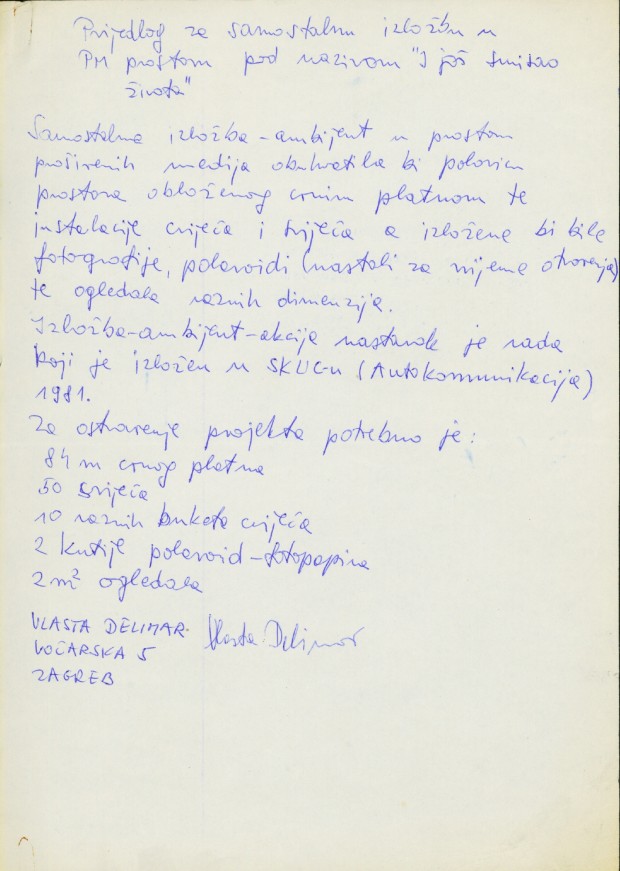 Prijedlog za samostalnu izložbu u
PM prostoru pod nazivom "I još smisao
života"
Samostalna izložba-ambijent u prostoru
proširenih medija obuhvatila bi polovicu
prostora obloženog crnim platnom te
instalacije cvijeća i svijeća a izložene bi bile
fotografije, polaroidi (nastali za vrijeme otvorenja)
te ogledala raznih dimenzija.
Izložba-ambijent-akcija nastavak je rada
koji je izložen u SKUC-u (Autokomunikacija)
1981.
Za ostvarenje projekta potrebno je:
84 m crnog platna
50 svijeća
10 raznih buketa cvijeća
2 kutije polaroid-fotopapira
2 m² ogledala
VLASTA DELIMAR Vlasta Delimar
VOĆARSKA 5
ZAGREB